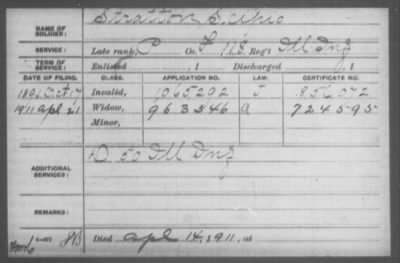 NAME OF SOLDIER: Stratton, Scikio
SERVICE: Late rank, P Co. F 118 Reg't Ill Inf
TERM OF SERVICE: Enlisted , 1 Discharged , 1
DATE OF FILING. CLASS. APPLICATION NO. LAW. CERTIFICATE NO.
1891 Oct 17 Invalid, 1065292 J 856,072
1911 Apl 21 Widow, 963546 a 724595
Minor,
ADDITIONAL SERVICES: D 50 Ill Inf
REMARKS:
Died Apl 14, 1911, at